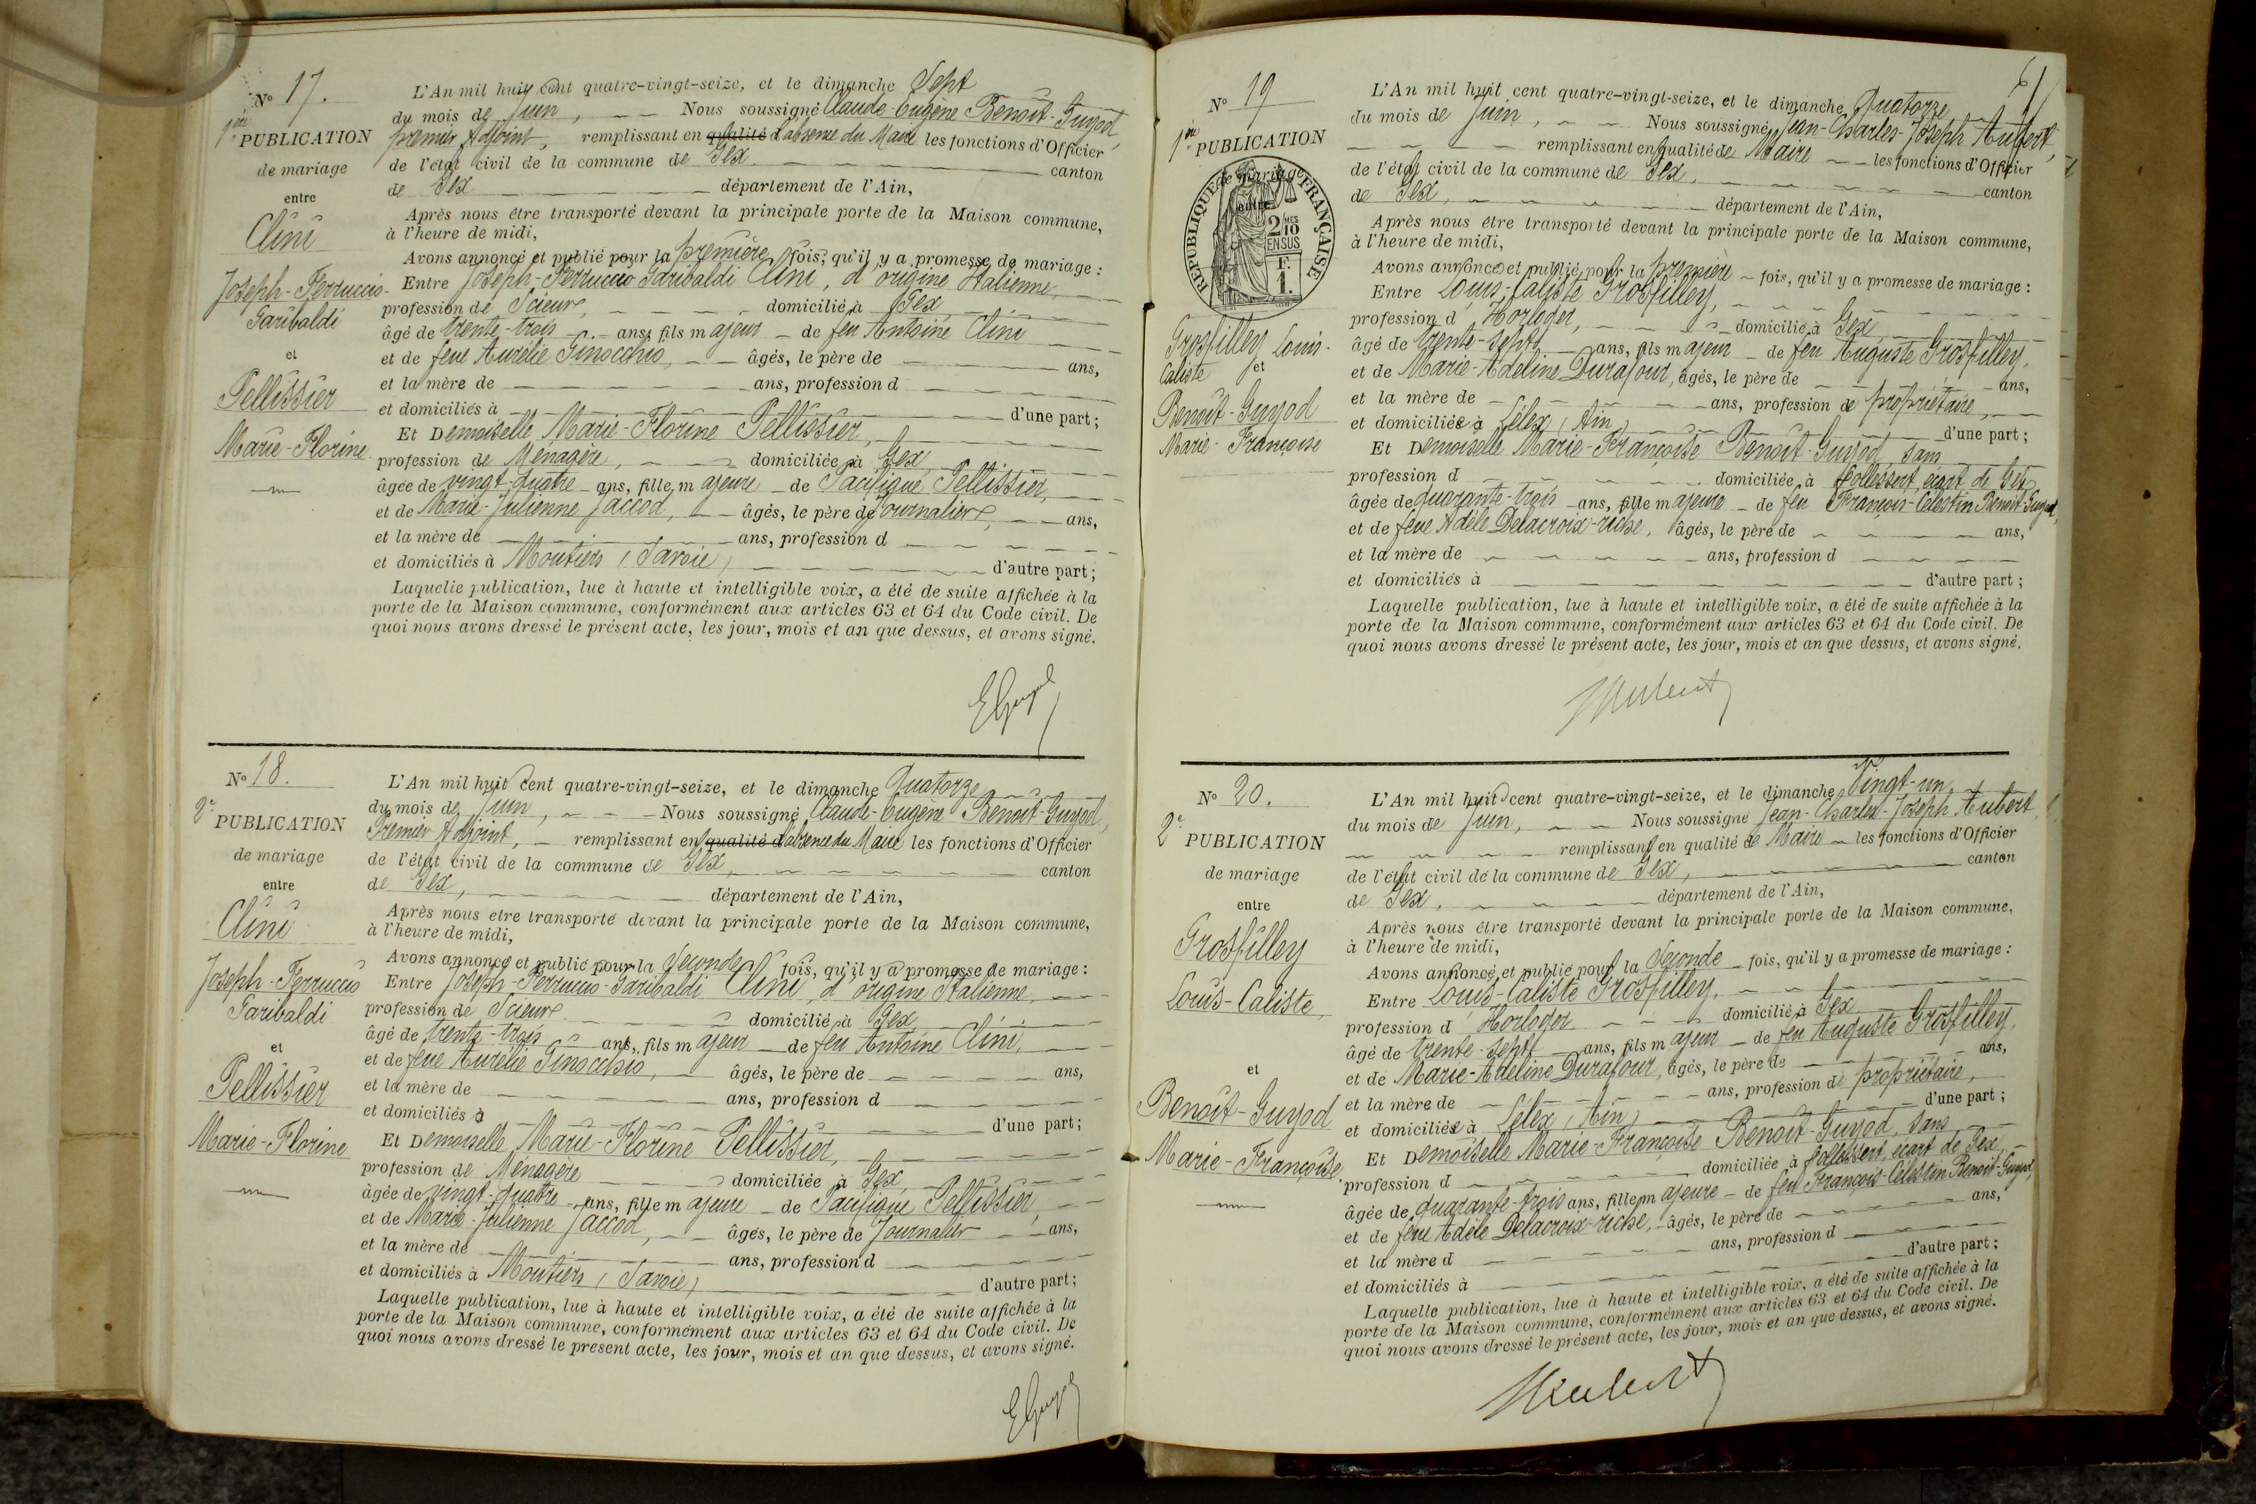 N° 17.
1ère PUBLICATION
de mariage
entre
Clini
Joseph-Ferruccio-
Garibaldi
et
Pellissier
Marie-Florine
L'An mil huit cent quatre-vingt-seize, et le dimanche Sept
du mois de Juin, Nous soussigné Claude-Eugène Benoit-Guyod,
premier Adjoint, remplissant en qualité d'absence du Maire les fonctions d'Officier
de l'état civil de la commune de Gex canton
de Gex département de l'Ain,
Après nous être transporté devant la principale porte de la Maison commune,
à l'heure de midi,
Avons annoncé et publié pour la première fois, qu'il y a promesse de mariage :
Entre Joseph-Ferruccio Garibaldi Clini, d'origine Italienne,
profession de Scieur, domicilié à Gex
âgé de trente-trois ans, fils majeur de feu Antoine Clini
et de feue Aurélie Ginocchio, âgés, le père de ans,
et la mère de ans, profession d
et domiciliés à d'une part ;
Et Demoiselle Marie-Florine Pellissier,
profession de Ménagère, domiciliée à Gex,
âgée de vingt-quatre ans, fille majeure de Pacifique Pellissier,
et de Marie-Julienne Jaccod, âgés, le père de Journalier, ans,
et la mère de ans, profession d
et domiciliés à Moutiers (Savoie) d'autre part ;
Laquelle publication, lue à haute et intelligible voix, a été de suite affichée à la
porte de la Maison commune, conformément aux articles 63 et 64 du Code civil. De
quoi nous avons dressé le présent acte, les jour, mois et an que dessus, et avons signé.
N° 18.
2e PUBLICATION
de mariage
entre
Clini
Joseph-Ferruccio
Garibaldi
et
Pellissier
Marie-Florine
L'An mil huit cent quatre-vingt-seize, et le dimanche Quatorze
du mois de Juin, Nous soussigné Claude-Eugène Benoit-Guyod,
Premier Adjoint, remplissant en qualité d'absence du Maire les fonctions d'Officier
de l'état civil de la commune de Gex, canton
de Gex, département de l'Ain,
Après nous être transporté devant la principale porte de la Maison commune,
à l'heure de midi,
Avons annoncé et publié pour la Seconde fois, qu'il y a promesse de mariage :
Entre Joseph-Ferruccio-Garibaldi Clini, d'origine Italienne,
profession de Scieur domicilié à Gex
âgé de trente-trois ans, fils majeur de feu Antoine Clini,
et de feue Aurélie Ginocchio, âgés, le père de ans,
et la mère de ans, profession d
et domiciliés à d'une part ;
Et Demoiselle Marie-Florine Pellissier,
profession de Ménagère domiciliée à Gex,
âgée de vingt-quatre ans, fille majeure de Pacifique Pellissier,
et de Marie-Julienne Jaccod, âgés, le père de Journalier ans,
et la mère de ans, profession d
et domiciliés à Moutiers (Savoie) d'autre part ;
Laquelle publication, lue à haute et intelligible voix, a été de suite affichée à la
porte de la Maison commune, conformément aux articles 63 et 64 du Code civil. De
quoi nous avons dressé le présent acte, les jour, mois et an que dessus, et avons signé.
N° 19
1ère PUBLICATION
de mariage
entre
REPUBLIQUE FRANÇAISE
2 MES
10
EN SUS
F.
1.
Grosfilley Louis-
Caliste et
Benoit-Guyod
Marie-Françoise
L'An mil huit cent quatre-vingt-seize, et le dimanche Quatorze
du mois de Juin, Nous soussigné Jean-Charles-Joseph Aubert,
remplissant en qualité de Maire les fonctions d'Officier
de l'état civil de la commune de Gex, canton
de Gex, département de l'Ain,
Après nous être transporté devant la principale porte de la Maison commune,
à l'heure de midi,
Avons annoncé et publié pour la première fois, qu'il y a promesse de mariage :
Entre Louis-Caliste Grosfilley,
profession d'Horloger, domicilié à Gex
âgé de trente-sept ans, fils majeur de feu Auguste Grosfilley,
et de Marie-Adeline Durafour, âgés, le père de ans,
et la mère de ans, profession de propriétaire,
et domiciliée à Lélex (Ain) d'une part ;
Et Demoiselle Marie-Françoise Benoit-Guyod, sans
profession d domiciliée à Pollessert, écart de Gex,
âgée de quarante-trois ans, fille majeure de feu François-Célestin Benoit-Guyod,
et de feue Adèle Delacroix-riche, âgés, le père de ans,
et la mère de ans, profession d
et domiciliés à d'autre part ;
Laquelle publication, lue à haute et intelligible voix, a été de suite affichée à la
porte de la Maison commune, conformément aux articles 63 et 64 du Code civil. De
quoi nous avons dressé le présent acte, les jour, mois et an que dessus, et avons signé.
Aubert
N° 20.
2e PUBLICATION
de mariage
entre
Grosfilley
Louis-Caliste,
et
Benoit-Guyod
Marie-Françoise.
L'An mil huit cent quatre-vingt-seize, et le dimanche Vingt-un
du mois de Juin, Nous soussigné Jean-Charles-Joseph Aubert,
remplissant en qualité de Maire les fonctions d'Officier
de l'état civil de la commune de Gex, canton
de Gex, département de l'Ain,
Après nous être transporté devant la principale porte de la Maison commune,
à l'heure de midi,
Avons annoncé et publié pour la Seconde fois, qu'il y a promesse de mariage :
Entre Louis-Caliste Grosfilley,
profession d'Horloger domicilié à Gex
âgé de trente-sept ans, fils majeur de feu Auguste Grosfilley,
et de Marie-Adeline Durafour, âgés, le père de ans,
et la mère de ans, profession de propriétaire,
et domiciliée à Lélex (Ain) d'une part ;
Et Demoiselle Marie-Françoise Benoit-Guyod, sans
profession d domiciliée à Pollessert, écart de Gex,
âgée de quarante-trois ans, fille majeure de feu François-Célestin Benoit-Guyod,
et de feue Adèle Delacroix-riche, âgés, le père de ans,
et la mère d ans, profession d
et domiciliés à d'autre part ;
Laquelle publication, lue à haute et intelligible voix, a été de suite affichée à la
porte de la Maison commune, conformément aux articles 63 et 64 du Code civil. De
quoi nous avons dressé le présent acte, les jour, mois et an que dessus, et avons signé.
Aubert